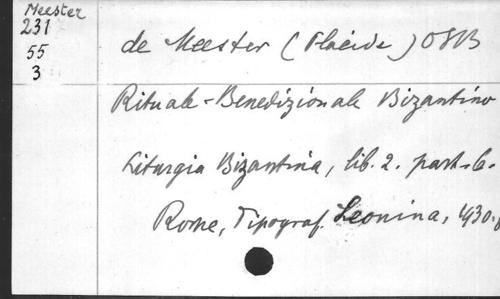 Meester
231
55
3
de Meester (Placide) OSB
Rituale-Benedizionale Bizantino
Liturgia Bizantina, lib. 2. part. 6.
Rome, Tipograf. Leonina, 1930.